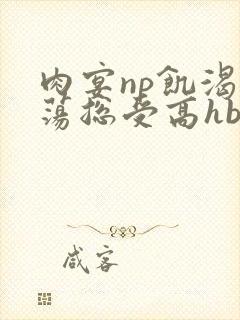 肉宴np飢渴
蕩総受高hb
咸客